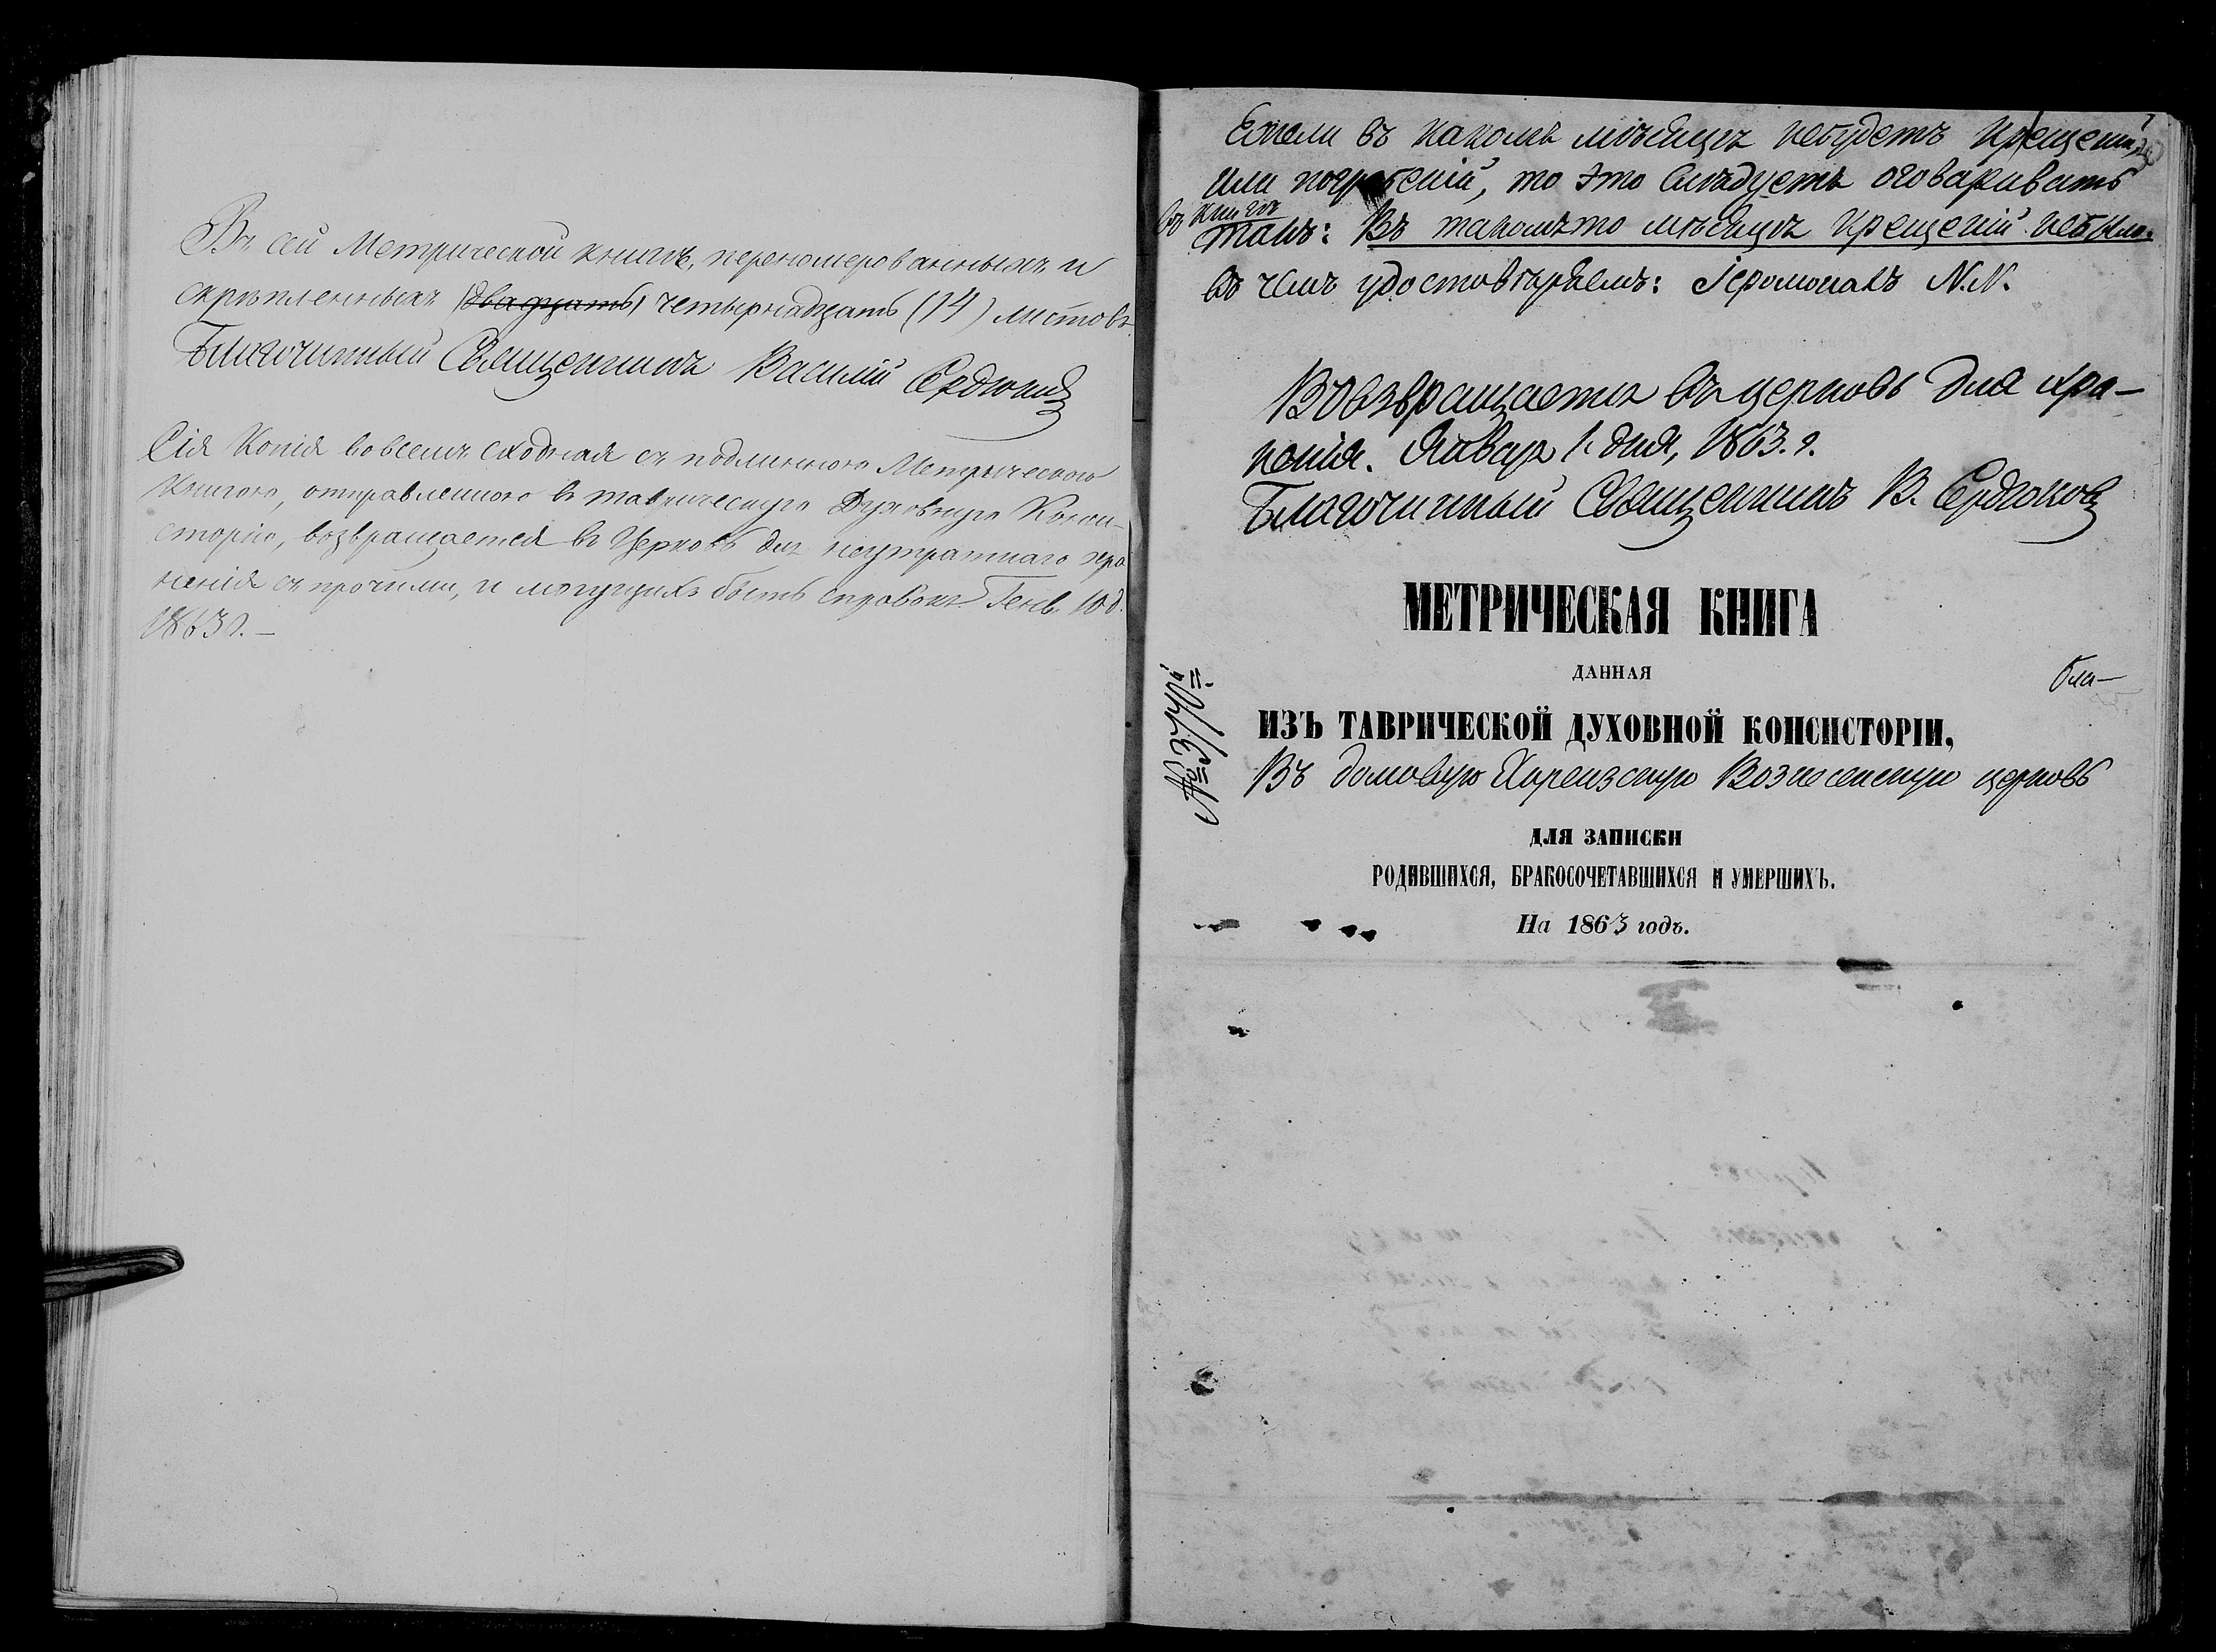 Въ сей Метрической книгѣ, перенумерованныхъ и
скрѣпленныхъ (двадцать) четырнадцать (14) листовъ
Благочинный Священникъ Василій Сердюковъ
Сія Копія во всемъ сходная съ подлинною Метрическою
Книгою, отправленною въ таврическую Духовную Конси-
сторію, возвращается въ Церковь для неутратнаго хра
ненія съ прочими, и могущихъ быть справокъ Генв. 10 д.
1863 г. —
Ежели въ какомъ мѣсяцѣ небудетъ крещеній
или погребеній, то это слѣдуетъ оговаривать
въ книгѣ
такъ: Въ такомъ то мѣсяцѣ крещеній небыло.
въ чемъ удостовѣряемъ: Іеромонахъ N.N.
Возвращается въ церковь для хра-
ненія. Январ 1. дня, 1863. г.
Благочинный Священникъ В. Сердюковъ
МЕТРИЧЕСКАЯ КНИГА
ДАННАЯ
бла—
ИЗЪ ТАВРИЧЕСКОЙ ДУХОВНОЙ КОНСИСТОРІИ,
Въ домовую Хореизскую Вознесенскую церковь
ДЛЯ ЗАПИСКИ
РОДИВШИХСЯ, БРАКОСОЧЕТАВШИХСЯ И УМЕРШИХЪ.
На 1863 годъ.